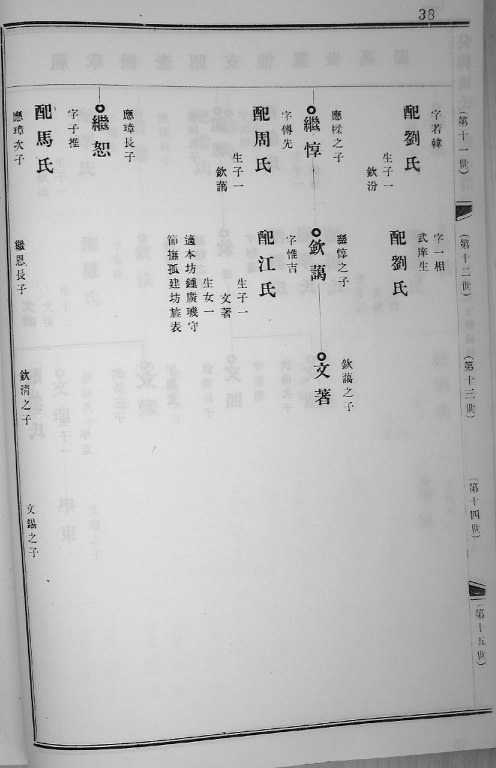 38
(第十一世)
(第十二世)
(第十三世)
(第十四世)
(第十五世)
字若韓
配劉氏
生子一
欽汾
字一相
武庠生
配劉氏
應樑之子
繼惇
字傳先
配周氏
生子一
欽藹
繼惇之子
欽藹
字惟吉
配江氏
生子一
文著
生女一
適本坊鍾廣璣守
節撫孤建坊旌表
欽藹之子
文著
應璋長子
繼恕
字子推
配馬氏
應璋次子
繼恩長子
欽清之子
文錫之子